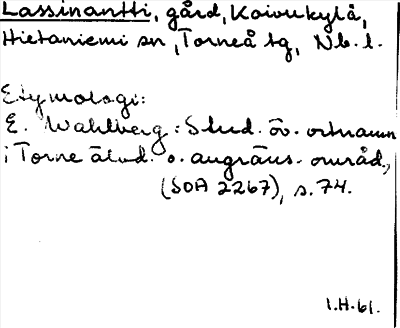 Lassinantti, gård, Koivukylä,
Hietaniemi sn, Torneå tg, Nb. l.
Etymologi:
E. Wahlberg: Stud. öv. ortnamn
i Torne älvd. o. angräns. områd.,
(SOA 2267), s. 74.
1.H.61.